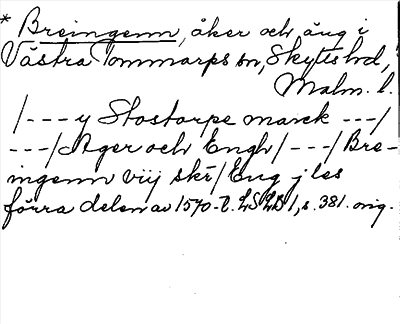 * Breingenn, åker och äng i
Västra Tommarps sn, Skytts hd,
Malm. l.
/---y Stostorpe marck ---/
---/Ager och Engh/---/Bre-
ingenn viij skr/Eng j les
förra delen av 1570-t. LSLB 1, s. 381. orig.